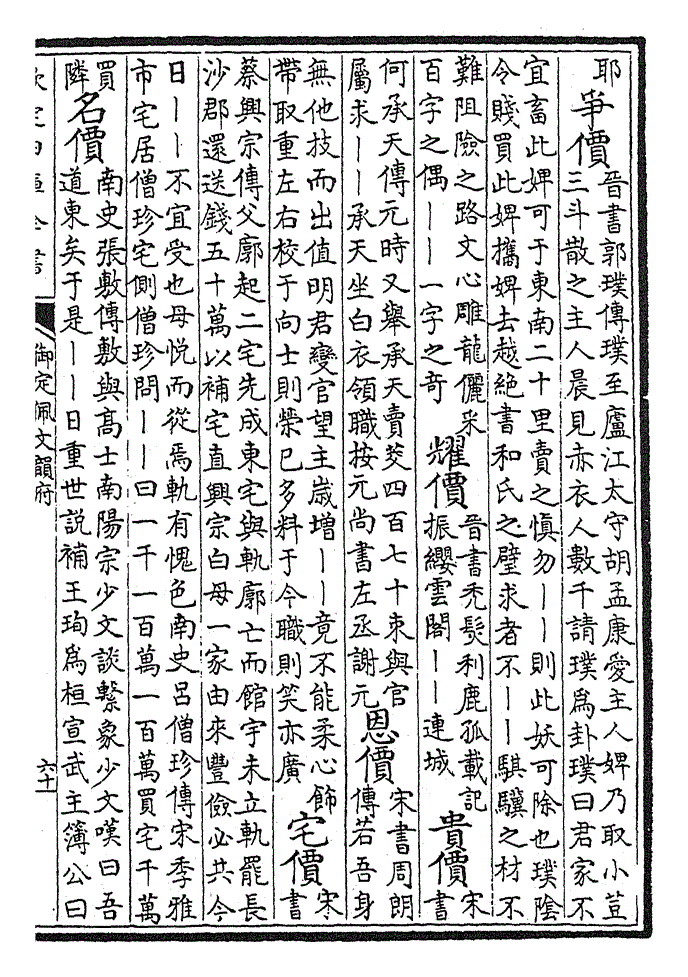 耶
爭價
晉書郭璞傳璞至廬江太守胡孟康愛主人婢乃取小荳
三斗散之主人晨見赤衣人數千請璞為卦璞曰君家不
宜畜此婢可于東南二十里賣之慎勿丨丨則此妖可除也璞陰
令賤買此婢攜婢去越絕書和氏之璧求者不丨丨騏驥之材不
難阻險之路文心雕龍儷采
百字之偶丨丨一字之奇
耀價
晉書禿髮利鹿孤載記
振纓雲閣丨丨連城
貴價
宋
書
何承天傳元時又舉承天賣茭四百七十束與官
屬求丨丨承天坐白衣領職按元尚書左丞謝元
恩價
宋書周朗
傳若吾身
無他技而出值明君變官望主歲增丨丨竟不能柔心飾
帶取重左右校于向士則榮已多料于今職則笑亦廣
宅價
宋
書
蔡興宗傳父廓起二宅先成東宅與軌廓亡而館宇未立軌罷長
沙郡還送錢五十萬以補宅直興宗白母一家由來豐儉必共今
日丨丨不宜受也母悅而從焉軌有愧色南史呂僧珍傳宋季雅
市宅居僧珍宅側僧珍問丨丨曰一千一百萬一百萬買宅千萬
買
隣
名價
南史張敷傳敷與高士南陽宗少文談繫象少文嘆曰吾
道東矣于是丨丨日重世說補王珣為桓宣武主簿公曰
欽定四庫全書
御定佩文韻府
六十